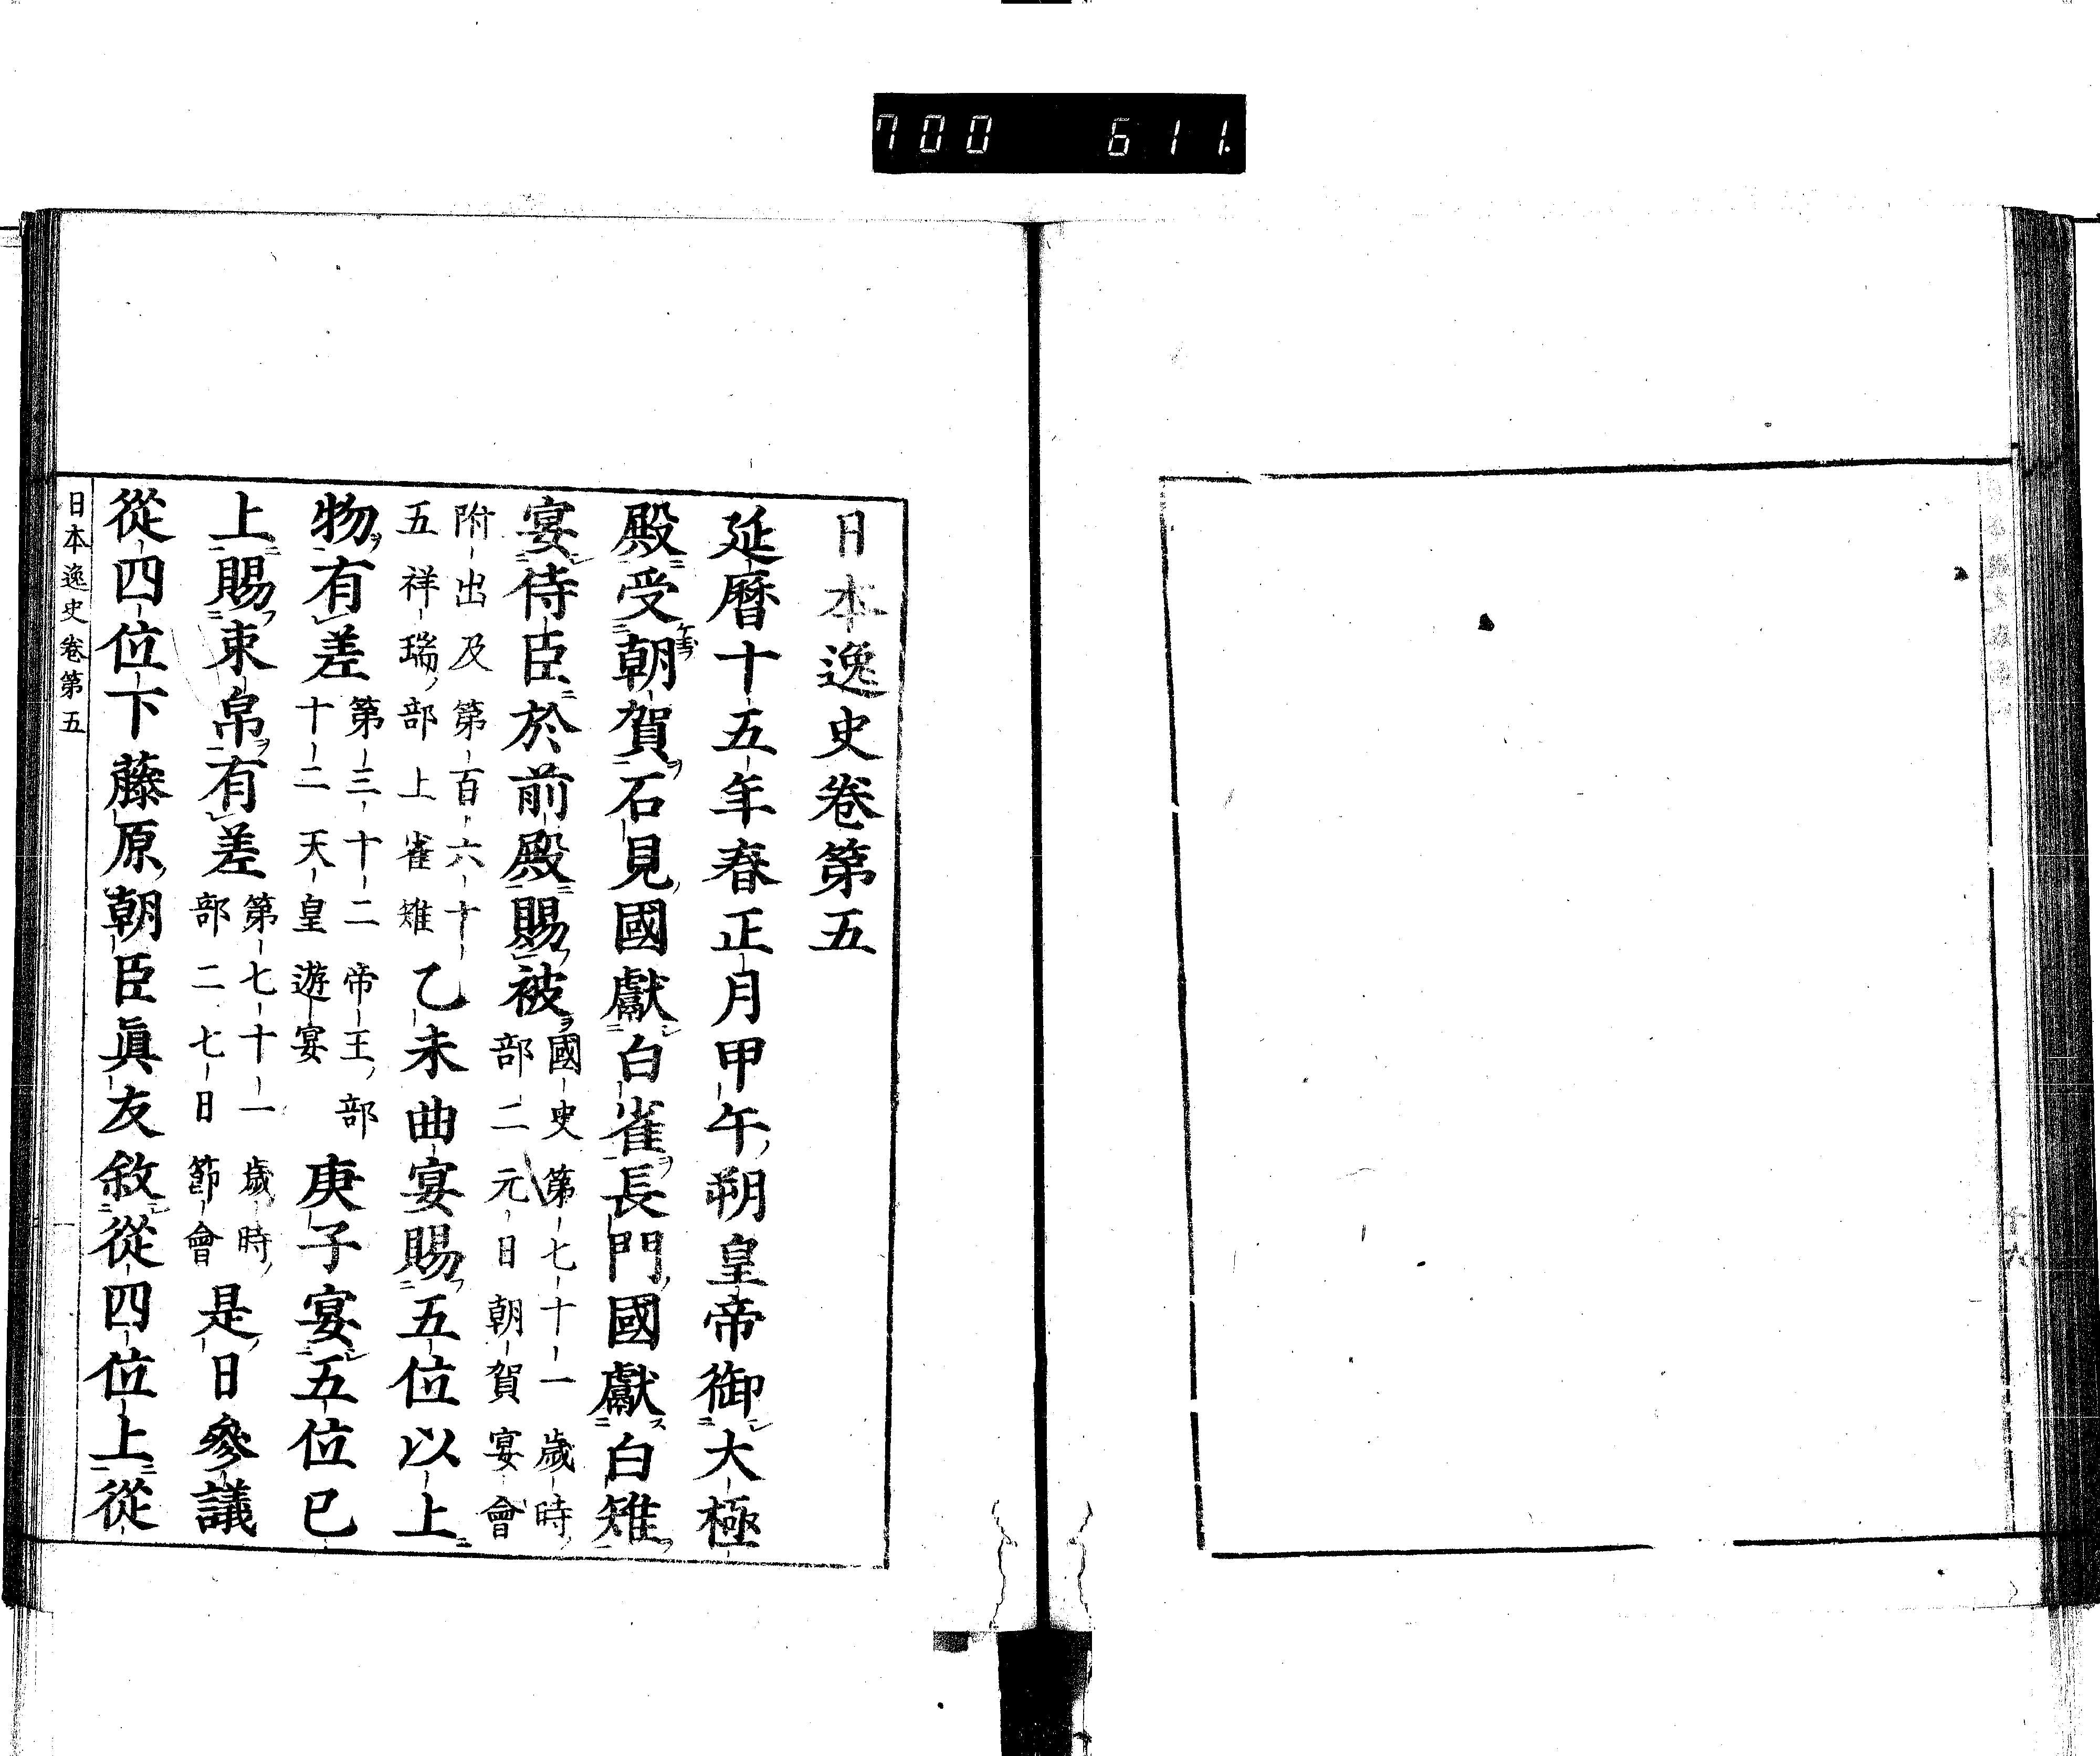 700 611
日本逸史卷第五
延曆十五年春正月甲午朔皇帝御大極
殿受朝賀石見國獻白雀長門國獻白雉
宴侍臣於前殿賜被國史第七十一歲時部二元日朝賀宴會
附出及第百六十五祥瑞部上雀雉乙未曲宴賜五位以上
物有差第三十二帝王部十二天皇遊宴庚子宴五位已
上賜束帛有差第七十一歲時部二七日節會是日參議
從四位下藤原朝臣眞友敘從四位上從
日本逸史卷第五